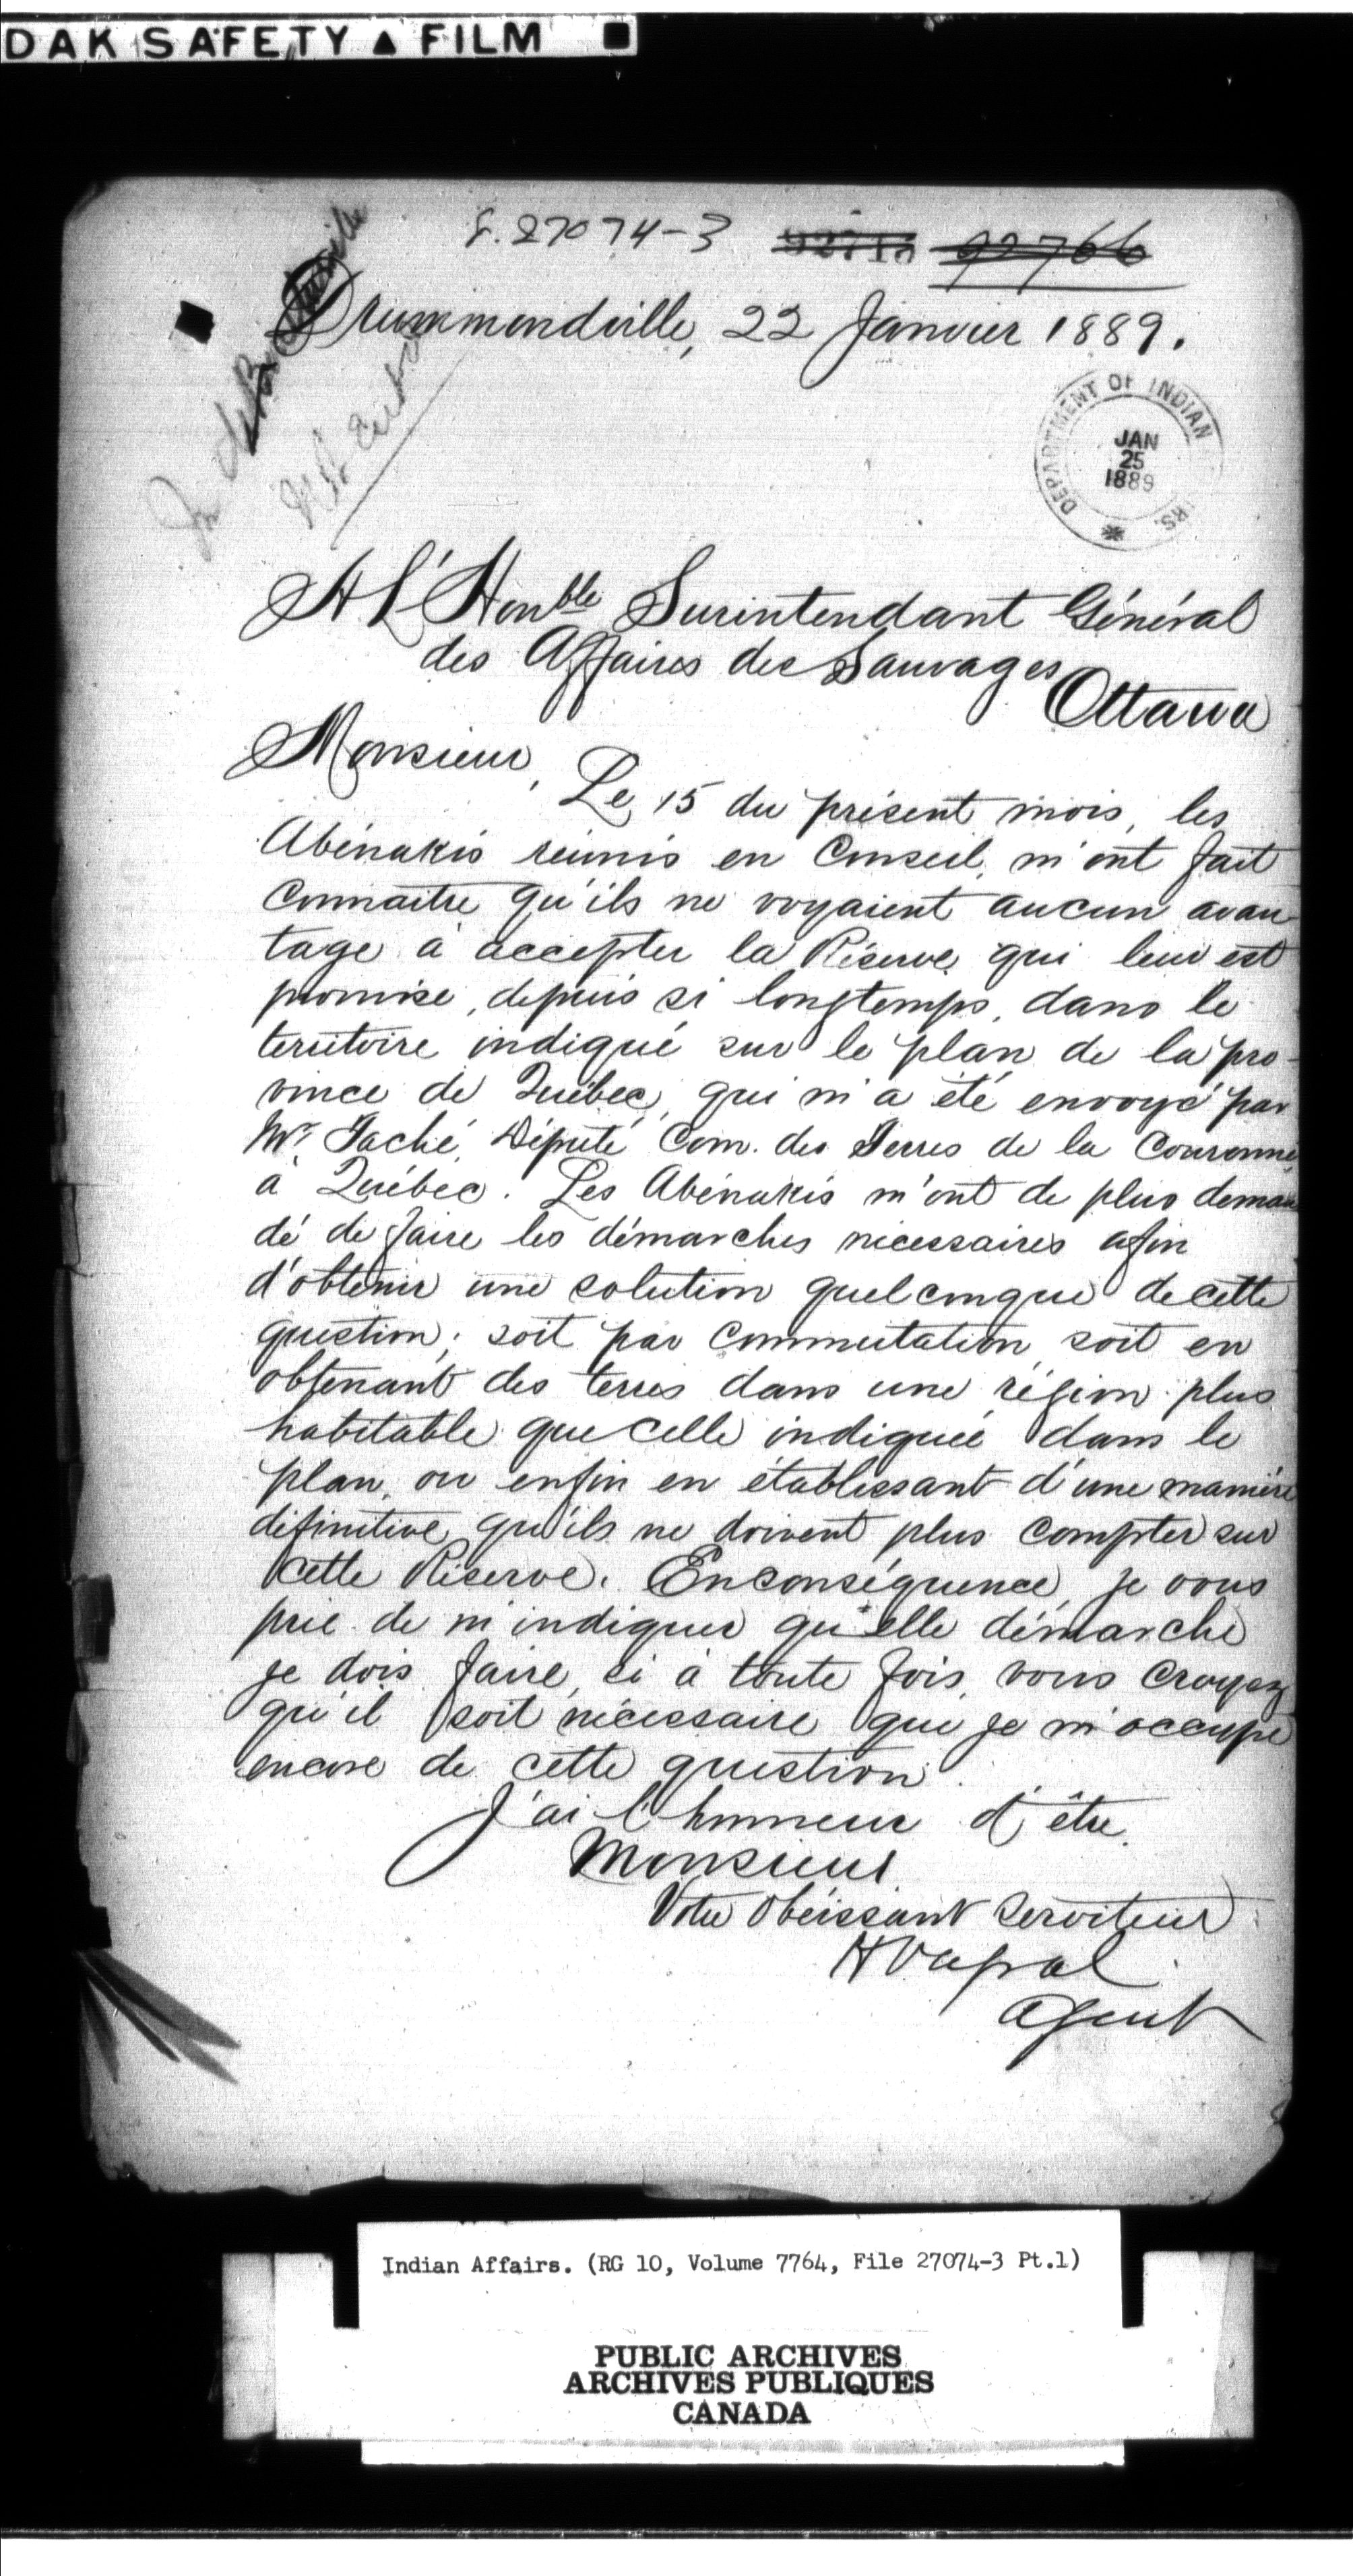 DAK SAFETY ▲ FILM ■
f. 27074-3 92766
Drummondville, 22 Janvier 1889.
DEPARTMENT OF INDIAN
JAN
25
1889
RS.
A L'Honble Surintendant Général
des Affaires des Sauvages
Ottawa
Monsieur,
Le 15 du présent mois, les
Abénakis réunis en Conseil, m'ont fait
connaitre qu'ils ne voyaient aucun avan-
tage à accepter la Réserve qui leur est
promise, depuis si longtemps, dans le
territoire indiqué sur le plan de la pro-
vince de Québec, qui m'a été envoyé par
Mr. Taché, Député Com. des Terres de la Couronne,
à Québec. Les Abénakis m'ont de plus deman
dé de faire les démarches nécessaires afin
d'obtenir une solution quelconque de cette
question; soit par commutation, soit en
obtenant des terres dans une région plus
habitable que celle indiquée dans le
plan, ou enfin en établissant d'une manière
définitive qu'ils ne doivent plus compter sur
cette Réserve. En conséquence, je vous
prie de m'indiquer qu'elle démarche
je dois faire, si à toute fois, vous croyez
qu'il soit nécessaire que je m'occupe
encore de cette question.
J'ai l'honneur d'être,
Monsieur,
Votre Obéissant Serviteur
H Vassal
Agent
Indian Affairs. (RG 10, Volume 7764, File 27074-3 Pt.1)
PUBLIC ARCHIVES
ARCHIVES PUBLIQUES
CANADA